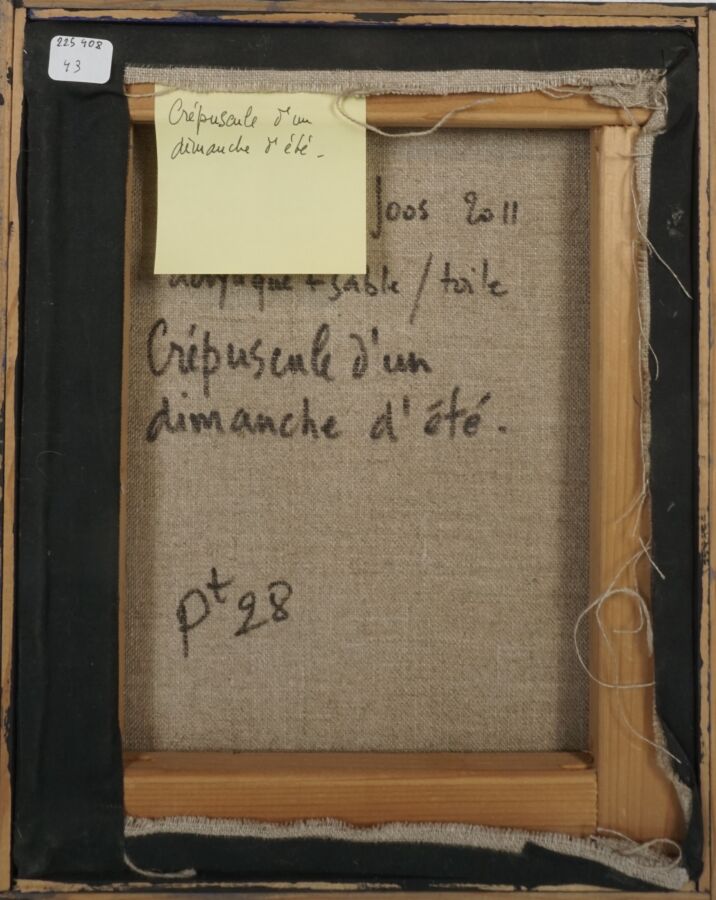 225 408
43
Crépuscule d'un
dimanche d'été -
Joos 2011
+ sable / toile
Crépuscule d'un
dimanche d'été.
pt 28